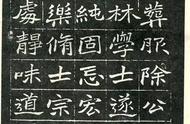 葬服除公
林學士遂
純固忌宏
樂脩士宗
處靜味道